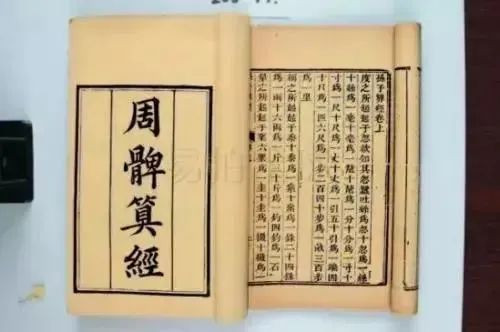 周髀算經
孫子算經卷上
度之所起起于忽欲知其忽蠶吐絲爲忽十忽爲一
十絲爲一毫十毫爲一氂十氂爲一分十分爲一寸十
寸爲一尺十尺爲一丈十丈爲一引五十引爲一
十尺爲一六尺爲一步二百四十步爲一畝三百步
爲一里
稱之所起起于黍十黍爲一絫十絫爲一銖二十四銖
爲一兩十六兩爲一斤三十斤爲一鈞四鈞爲一石
量之所起起于粟六粟爲一圭十圭爲一撮十撮爲一